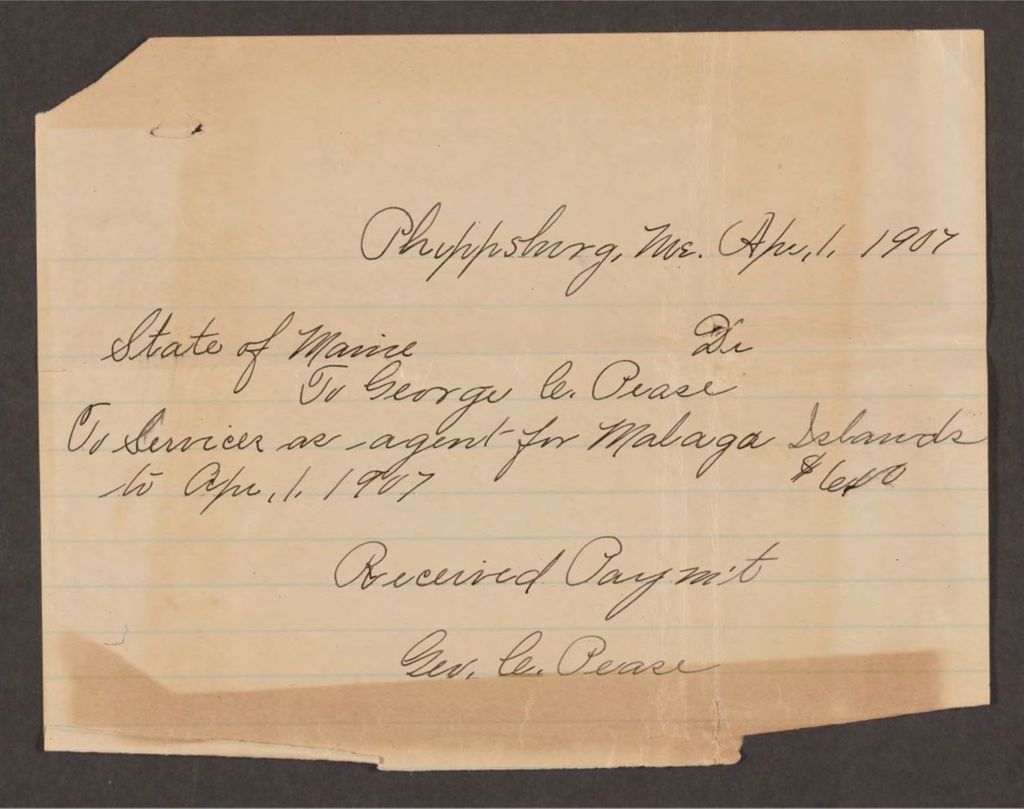 Phippsburg, Me. Apr, 1. 1907
State of Maine Dr
To George C. Pease
To Services as agent for Malaga Islands
to Apr, 1. 1907
Received Paym't
Geo. C. Pease